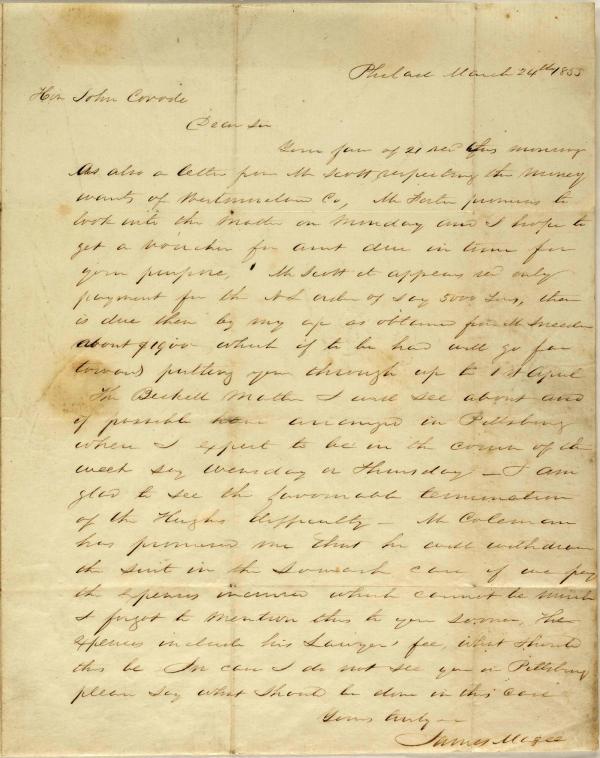 Philad March 24th 1855
Hon John Covode
Dear Sir
Your fav of 21 recd this morning
As also a letter from Mr Scott respecting the money
wants of Westmoreland Co, Mr Foster promises to
look into the Matter on Monday and I hope to
get a voucher for amt due in time for
your purpose, Mr Scott it appears recd only
payment for the order of say 5000 there
is due then by my as obtained from Mr
about $1900 which if to be had will go far
towards putting you through up to 1st April
The Beckett Matter I will see about and
if possible have arranged in Pittsburg
where I expect to be in the course of the
week say Wensday or Thursday – I am
glad to see the favourable termination
of the Hughs difficulty – Mr Coleman
has promised me that he will withdraw
the suit in the case if we pay
the expences incurred which cannot be much
I forgot to mention this to you sooner, the
expences include his Lawyers' fee, what should
this be In case I do not see you in Pittsburg
please say what should be done in this case
Yours truly
James Magee